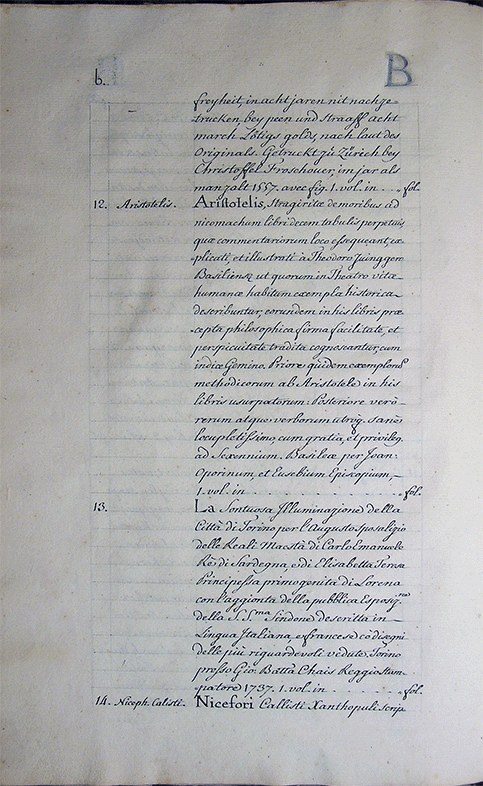 b.
B
freyheit, in acht jaren nit nachge-
trucken, bey peen und Straaff acht
march Lötigs golds, nach laut des
Originals. Getruckt zů Zürich bey
Christoffel Froschouer, im jar als
man zalt 1557. avec fig. 1. vol. in . . fol.
12. Aristotelis. Aristotelis, Stragiritæ de moribus ad
nicomachum libri decem tabulis perpetuis,
quæ commentariorum loco esse queant, ex-
plicati, et illustrati à Theodoro Zuinggero
Basiliense, ut quorum in Theatro vitæ
humanæ habitum exempla historica
describuntur, eorundem in his libris præ-
cepta philosophica forma facilitate, et
perspicuitate tradita cognoscantur, cum
indice Gemino. Priore quidem exemplorum
methodicorum ab Aristotele in his
libris usurpatorum: Posteriore verò
rerum atque verborum utrisq. sanè
locupletissimo, cum gratia, et privileg.
ad Sexennium. Basileæ per Joan-
Oporinum, et Eusebium Episcopium,
1. vol. in . . . . . . . . . . . . . . fol.
13. La Sontuosa Illuminazione della
Città di Torino per l'Augusto Sposalizio
delle Reali Maestà di Carlo Emanuele
Rè di Sardegna, e di Elisabetta Teresa
Principessa primogenita di Lorena
con l'aggionta della pubblica Esposiz.ne
della S.S.ma Sindone descritta in
Lingua Italiana, e francese cò disegni
delle più riguardevoli vedute. Torino
presso Gio. Battã Chais Reggio Stam-
patore 1737. 1. vol. in . . . . . . . fol.
14. Niceph. Calisti. Nicefori Callisti Xanthopuli scrip-